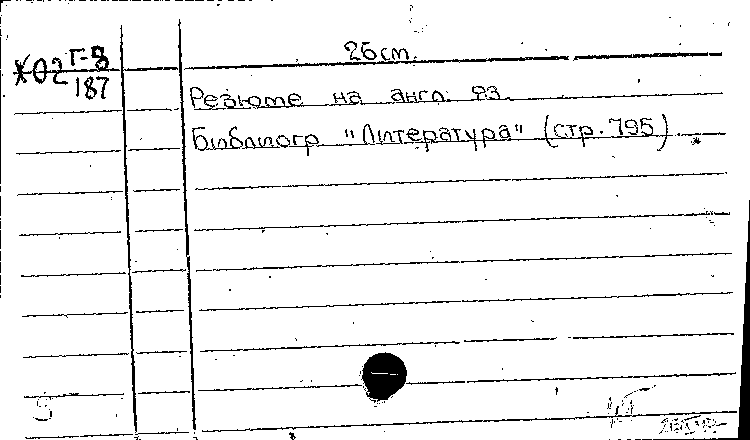 Г-3
*02
187
26 cm.
Резюме на англ. яз.
Библиогр "Литература" (стр. 795)